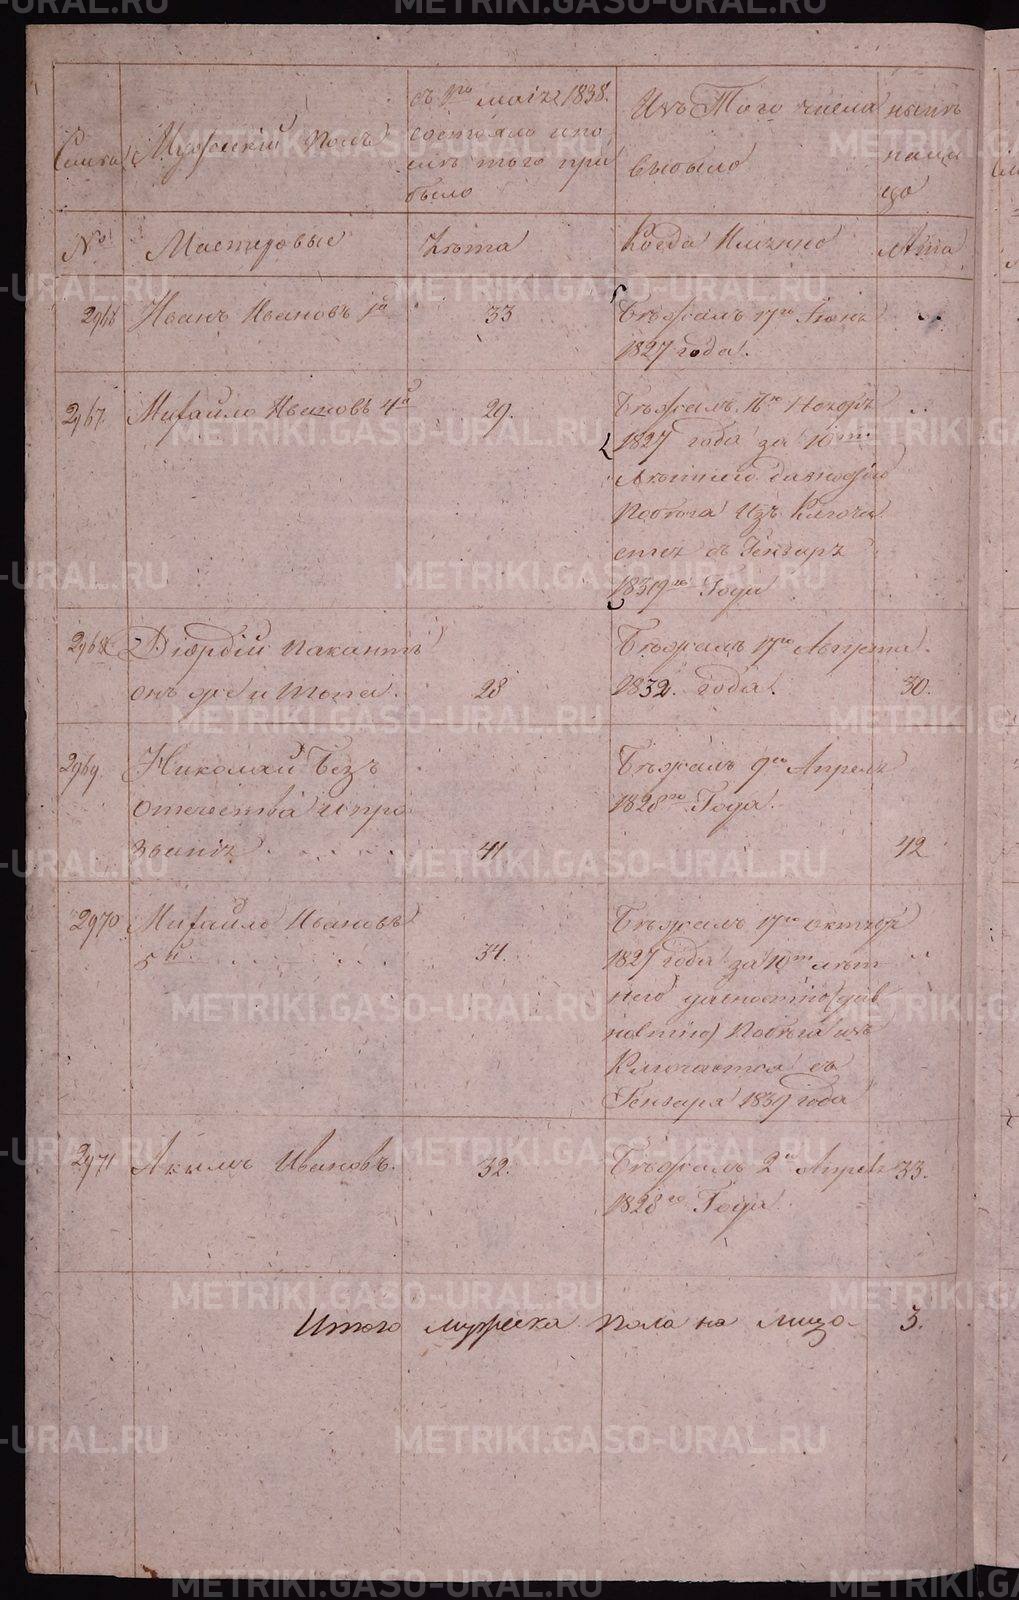 Мужескій Полъ
съ 1го маія 1838.
состояло и по
слѣ того при
было
Изъ Того числа
выбыло
нынѣ
на ли
цо
№
Мастеровые
Лѣта
Когда Имянно
Лѣта
2966
Иванъ Ивановъ 1й
33
Бѣжалъ 17го Іюня
1827 года.
2967.
Михайло Ивановъ 4й
29.
Бѣжалъ 16го Ноябрѣ
1827 года за 10ти
Лѣтнею давностію
Побѣга Изъ Ключа
ется съ Генваря
1839го Года
2968
онъ же и
28
Бѣжалъ 17го Августа.
1832. года.
30.
2969.
Николай Безъ
Отечества и про
званія
41
Бѣжалъ 9го Апрелѣ
1828го Года.
42
2970
Михайло Ивановъ
5й
34.
Бѣжалъ 17го октябр
1827 года за 10ти лѣт
нею давностію (дав
ностію) Побѣга изъ
Ключается съ
Генваря 1839 года
2971
Акимъ Ивановъ.
32.
Бѣжалъ 2го Апрелѣ
1828го Года
33.
Итого мужеска Пола на лицо
3.
METRIKI.GASO-URAL.RU